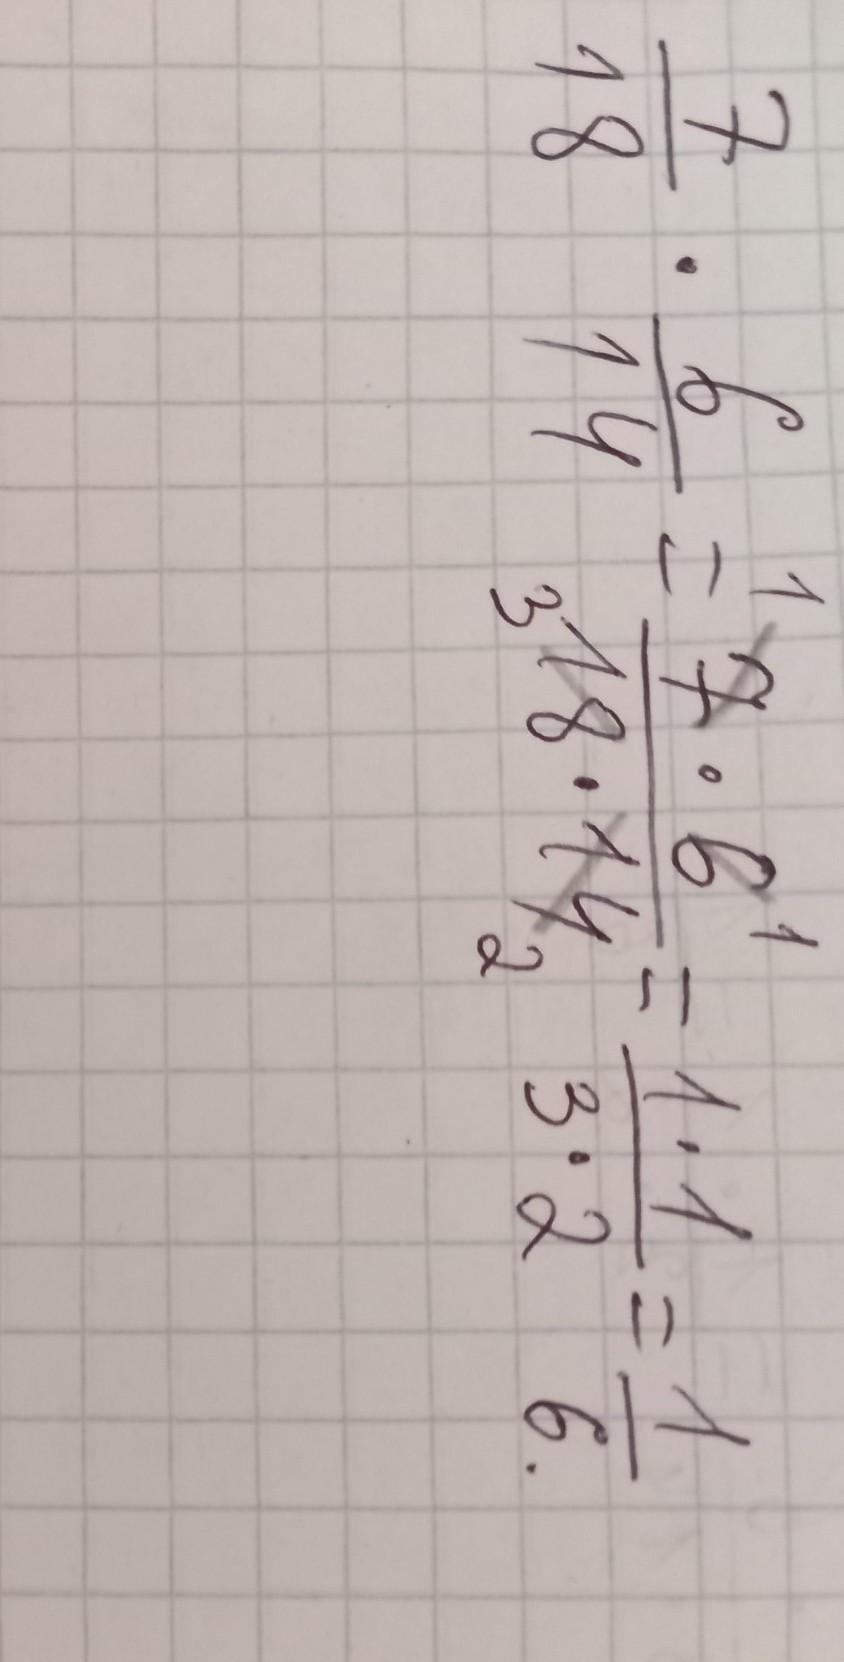 7/18 · 6/14 = ¹7 · 6¹ / ₃18 · 14₂ = 1 · 1 / 3 · 2 = 1/6.